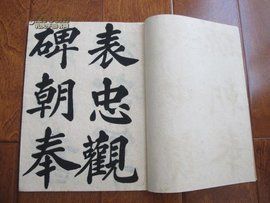 表忠觀
碑朝奉